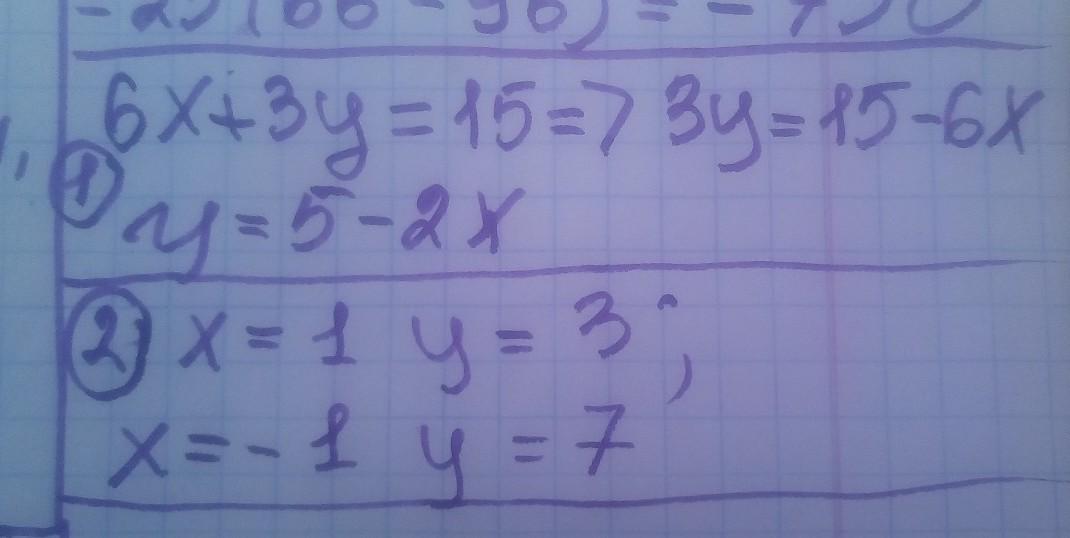 6x+3y=15=> 3y=15-6x
① y=5-2x
② x=1 y=3;
x=-1 y=7